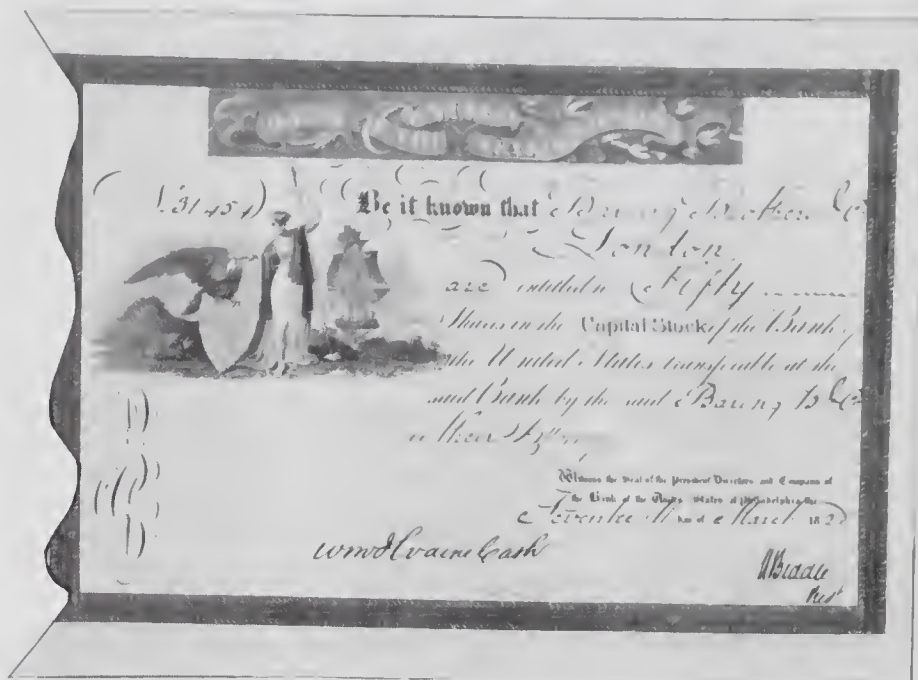 Be it known that Baring Brothers & Co
London
are entitled to Fifty
Shares in the Capital Stock of the Bank of
the United States transferable at the
said Bank by the said Baring B & Co
or their Atty
Witness the Seal of the President Directors and Company of
the Bank of the United States at Philadelphia the
day of March 182
Cash
N Biddle
Prest